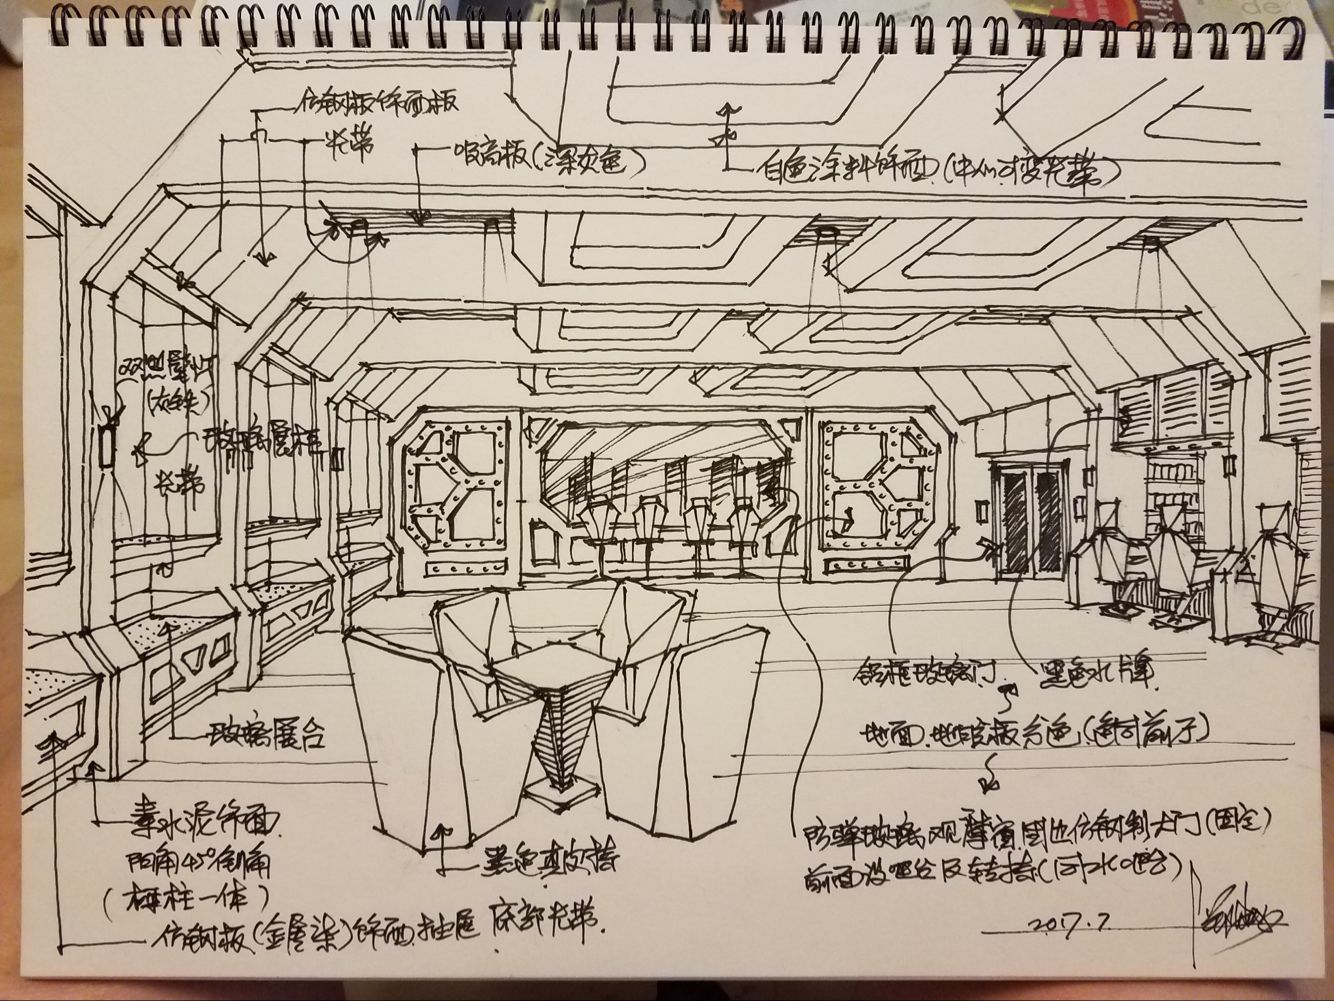 仿钢板饰面板
光带
吸音板(深灰色)
白色涂料饰面(中心可变光带)
双头壁灯
玻璃展柜
光带
玻璃展台
素水泥饰面
阳角45°倒角
(梁柱一体)
仿钢板(金属漆)饰面,抽屉 底部光带.
黑色真皮椅
铝框玻璃门.
黑色水牌
地面、地胶板分色(色同前厅)
防弹玻璃观摩窗,周边仿钢制大门(固定)
前面设吧台及转椅(同水吧台)
2017.7